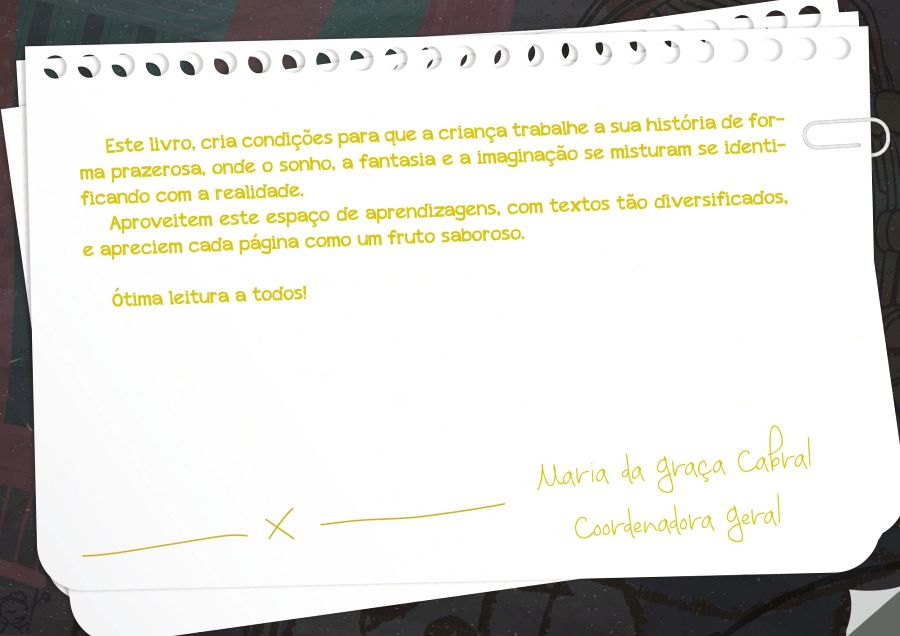 Este livro, cria condições para que a criança trabalhe a sua história de for-
ma prazerosa, onde o sonho, a fantasia e a imaginação se misturam se identi-
ficando com a realidade.
Aproveitem este espaço de aprendizagens, com textos tão diversificados,
e apreciem cada página como um fruto saboroso.
Ótima leitura a todos!
Maria da Graça Cabral
Coordenadora Geral